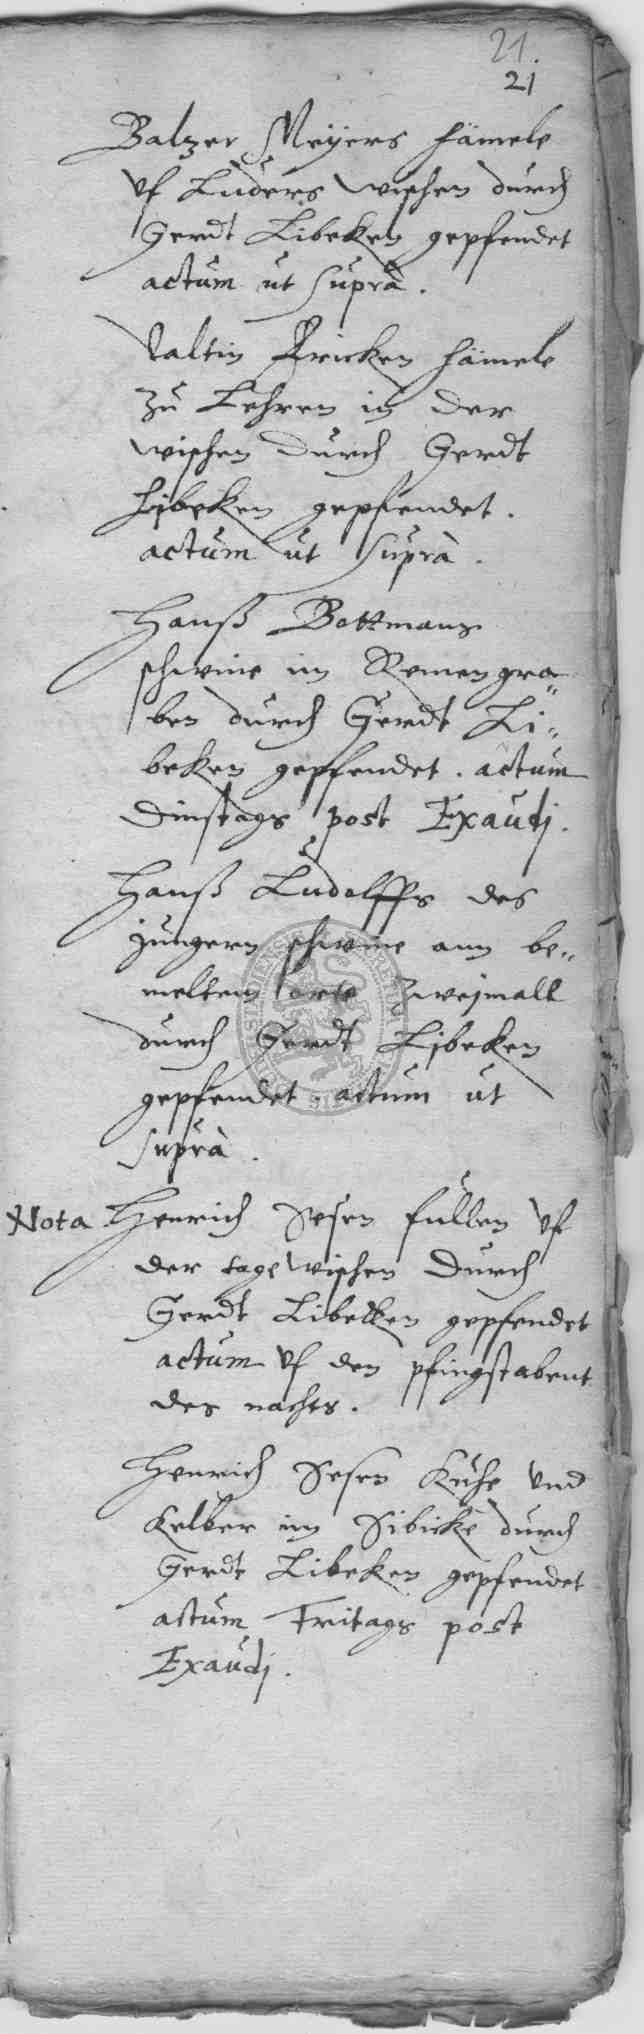 21.
21
Balzer Meÿers hämele
uf Lüders wischen durch
Gerdt Libeken gepfendet
actum ut suprà.
Valtin Fricken hämele
zu Lehren in der
wischen durch Gerdt
Libeken gepfendet.
actum ut suprà.
Hanß Bottmans
schweine im Remengra
ben durch Gerdt Li-
beken gepfendet. actum
Dinstags post Exaudj.
Hanß Ludolffs des
jungern schweine ann be-
meltem orte zweymall
durch Gerdt Libeken
gepfendet. actum ut
suprà.
Nota Henrich Sesen füllen uf
der tagewischen durch
Gerdt Libeken gepfendet
actum uf den pfingstabent
des nachts.
Henrich Sesen Kühe und
Kelber im Sibicke durch
Gerdt Libeken gepfendet
actum Fritags post
Exaudj.